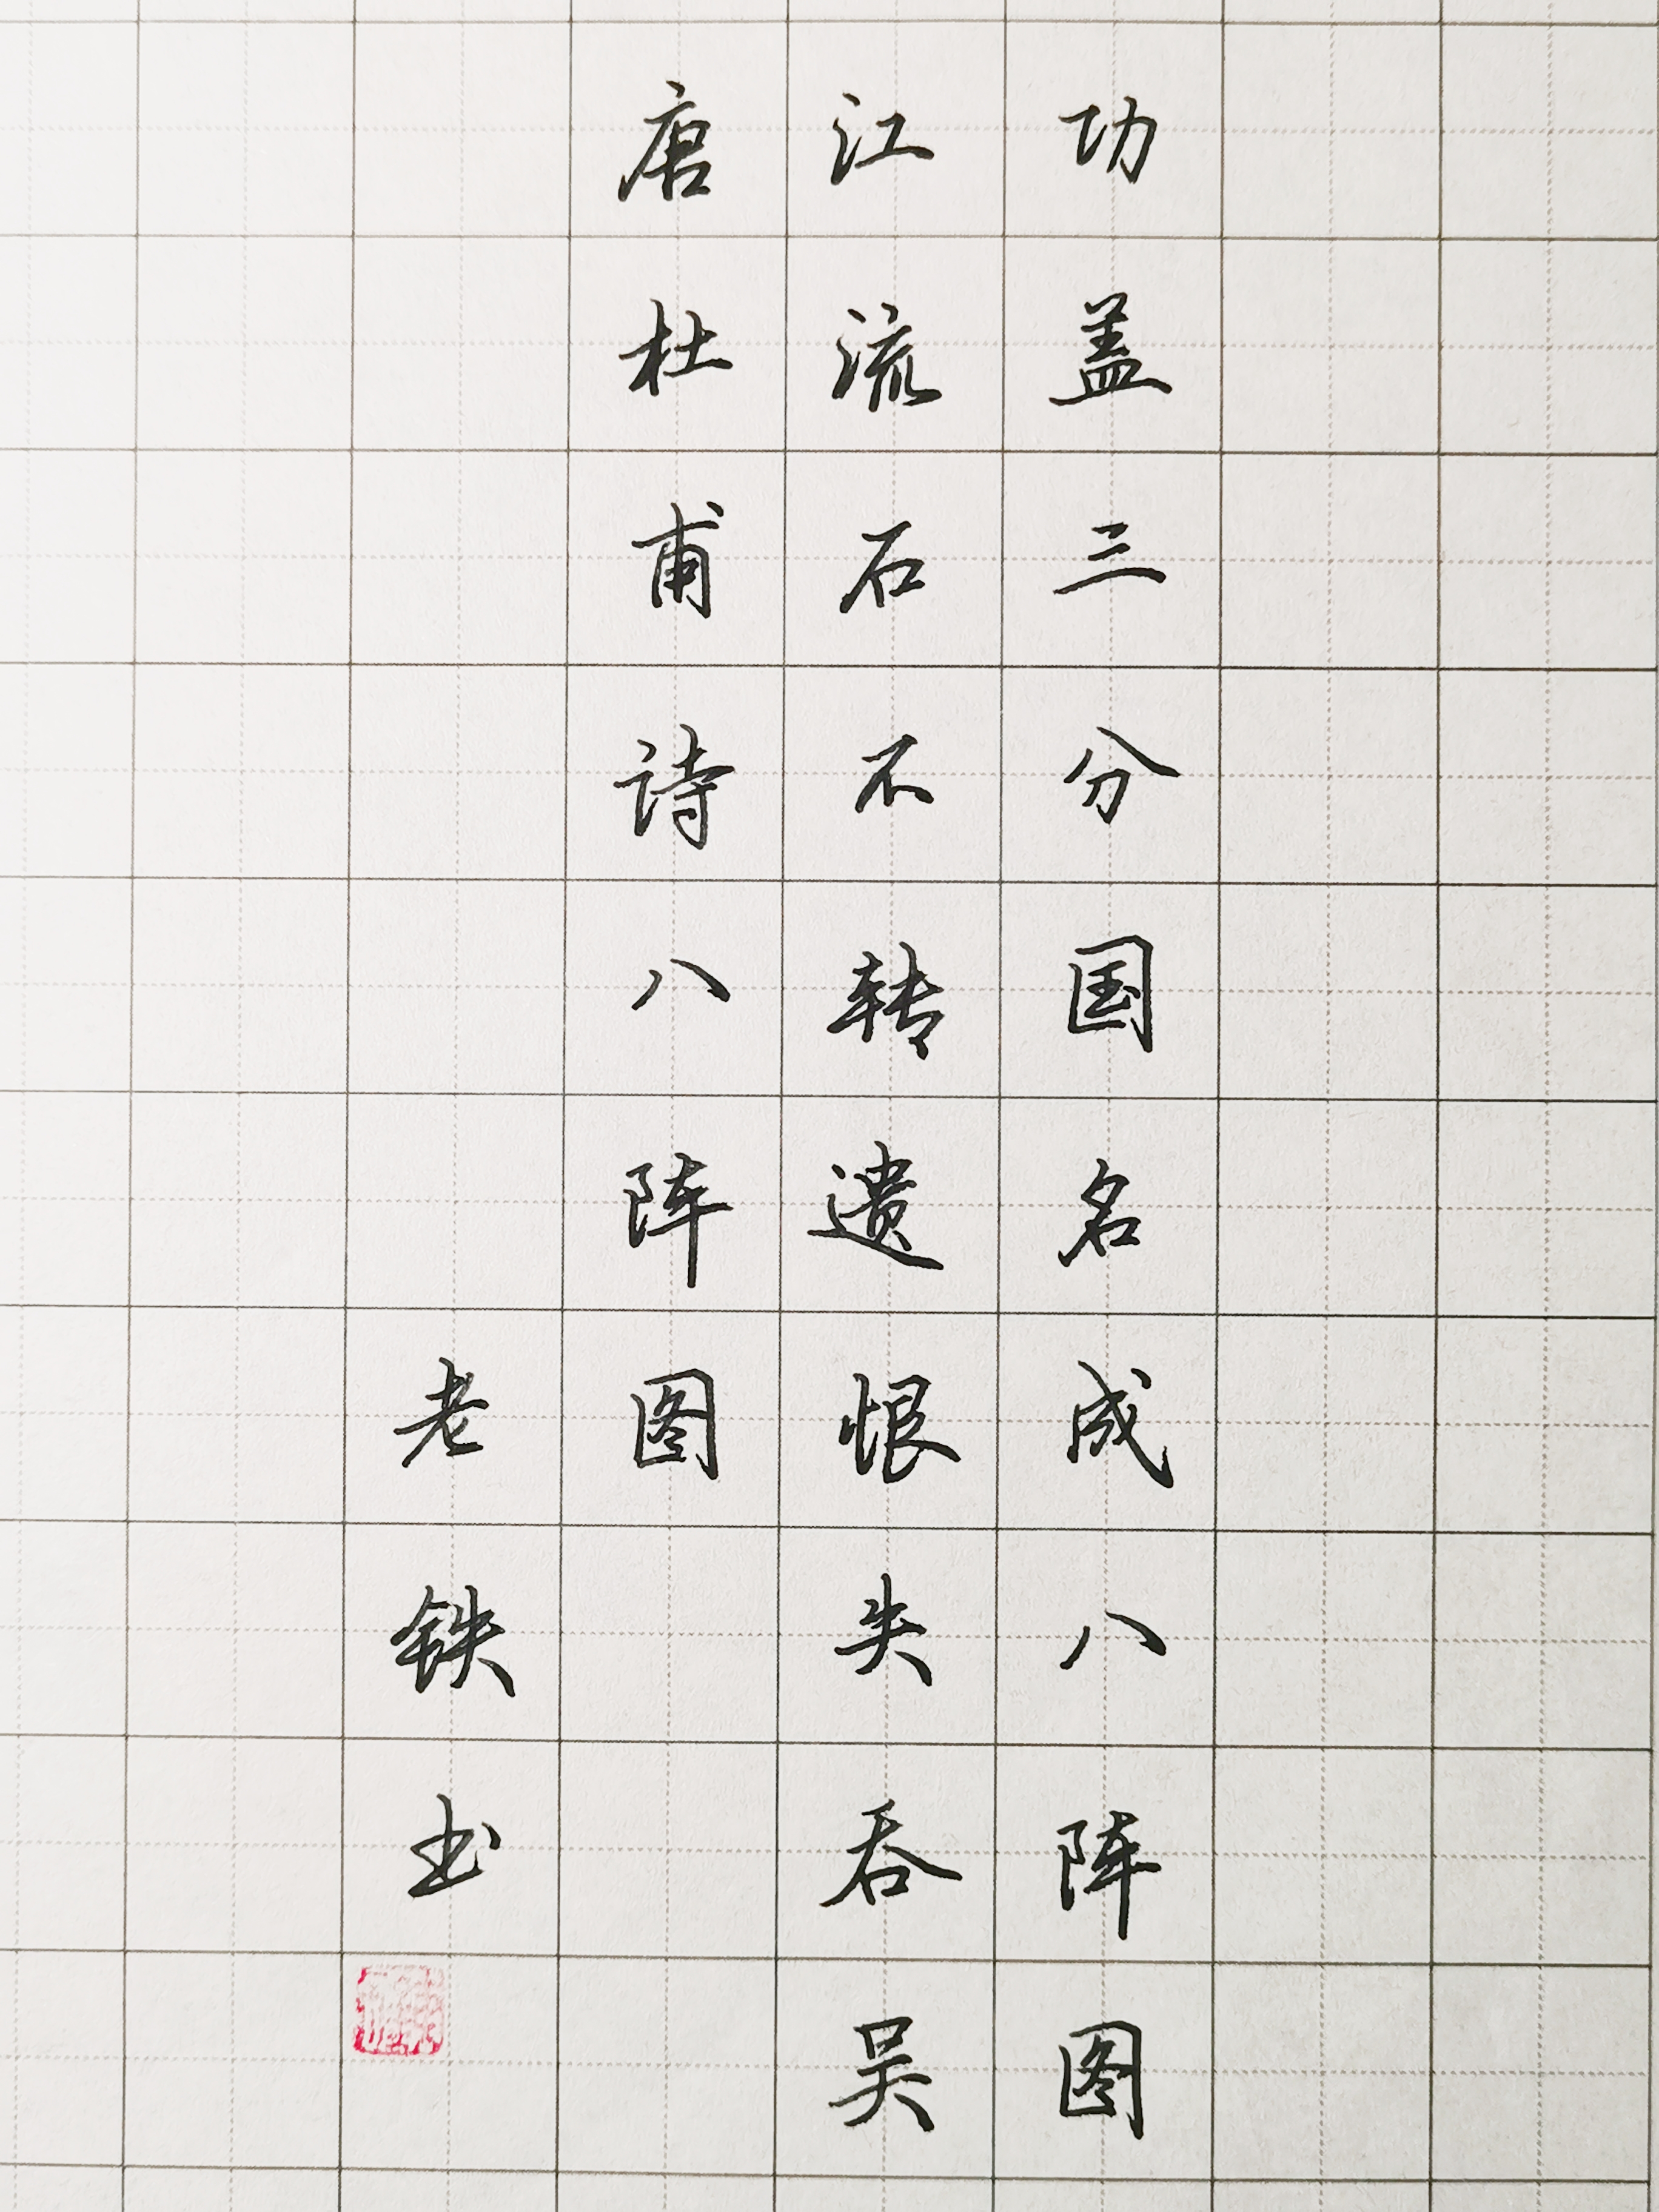 功盖三分国名成八阵图
江流石不转遗恨失吞吴
唐杜甫诗八阵图
老铁书